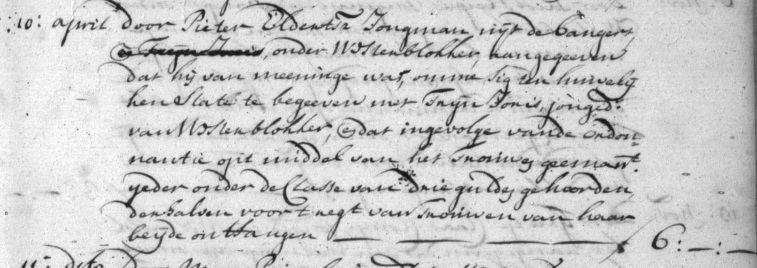 10: april door Pieter Eldertsz Jongman uijt de Bangert
en Trijn Jonis, onder Westerblokker, aangegeeven
dat hij van meeninge was, omme sig ten huwelij
ken state te begeeven met Trijn Jonis, jonged:
van Westerblokker, en dat ingevolge van de ordon-
nantie op 't middel van het trouwen geeman:t
yeder onder de Classe van drie gulden gehoorden
derhalven voor 't regt van trouwen van haar
beyde ontvangen — — — — 6:—:—
11: dito door